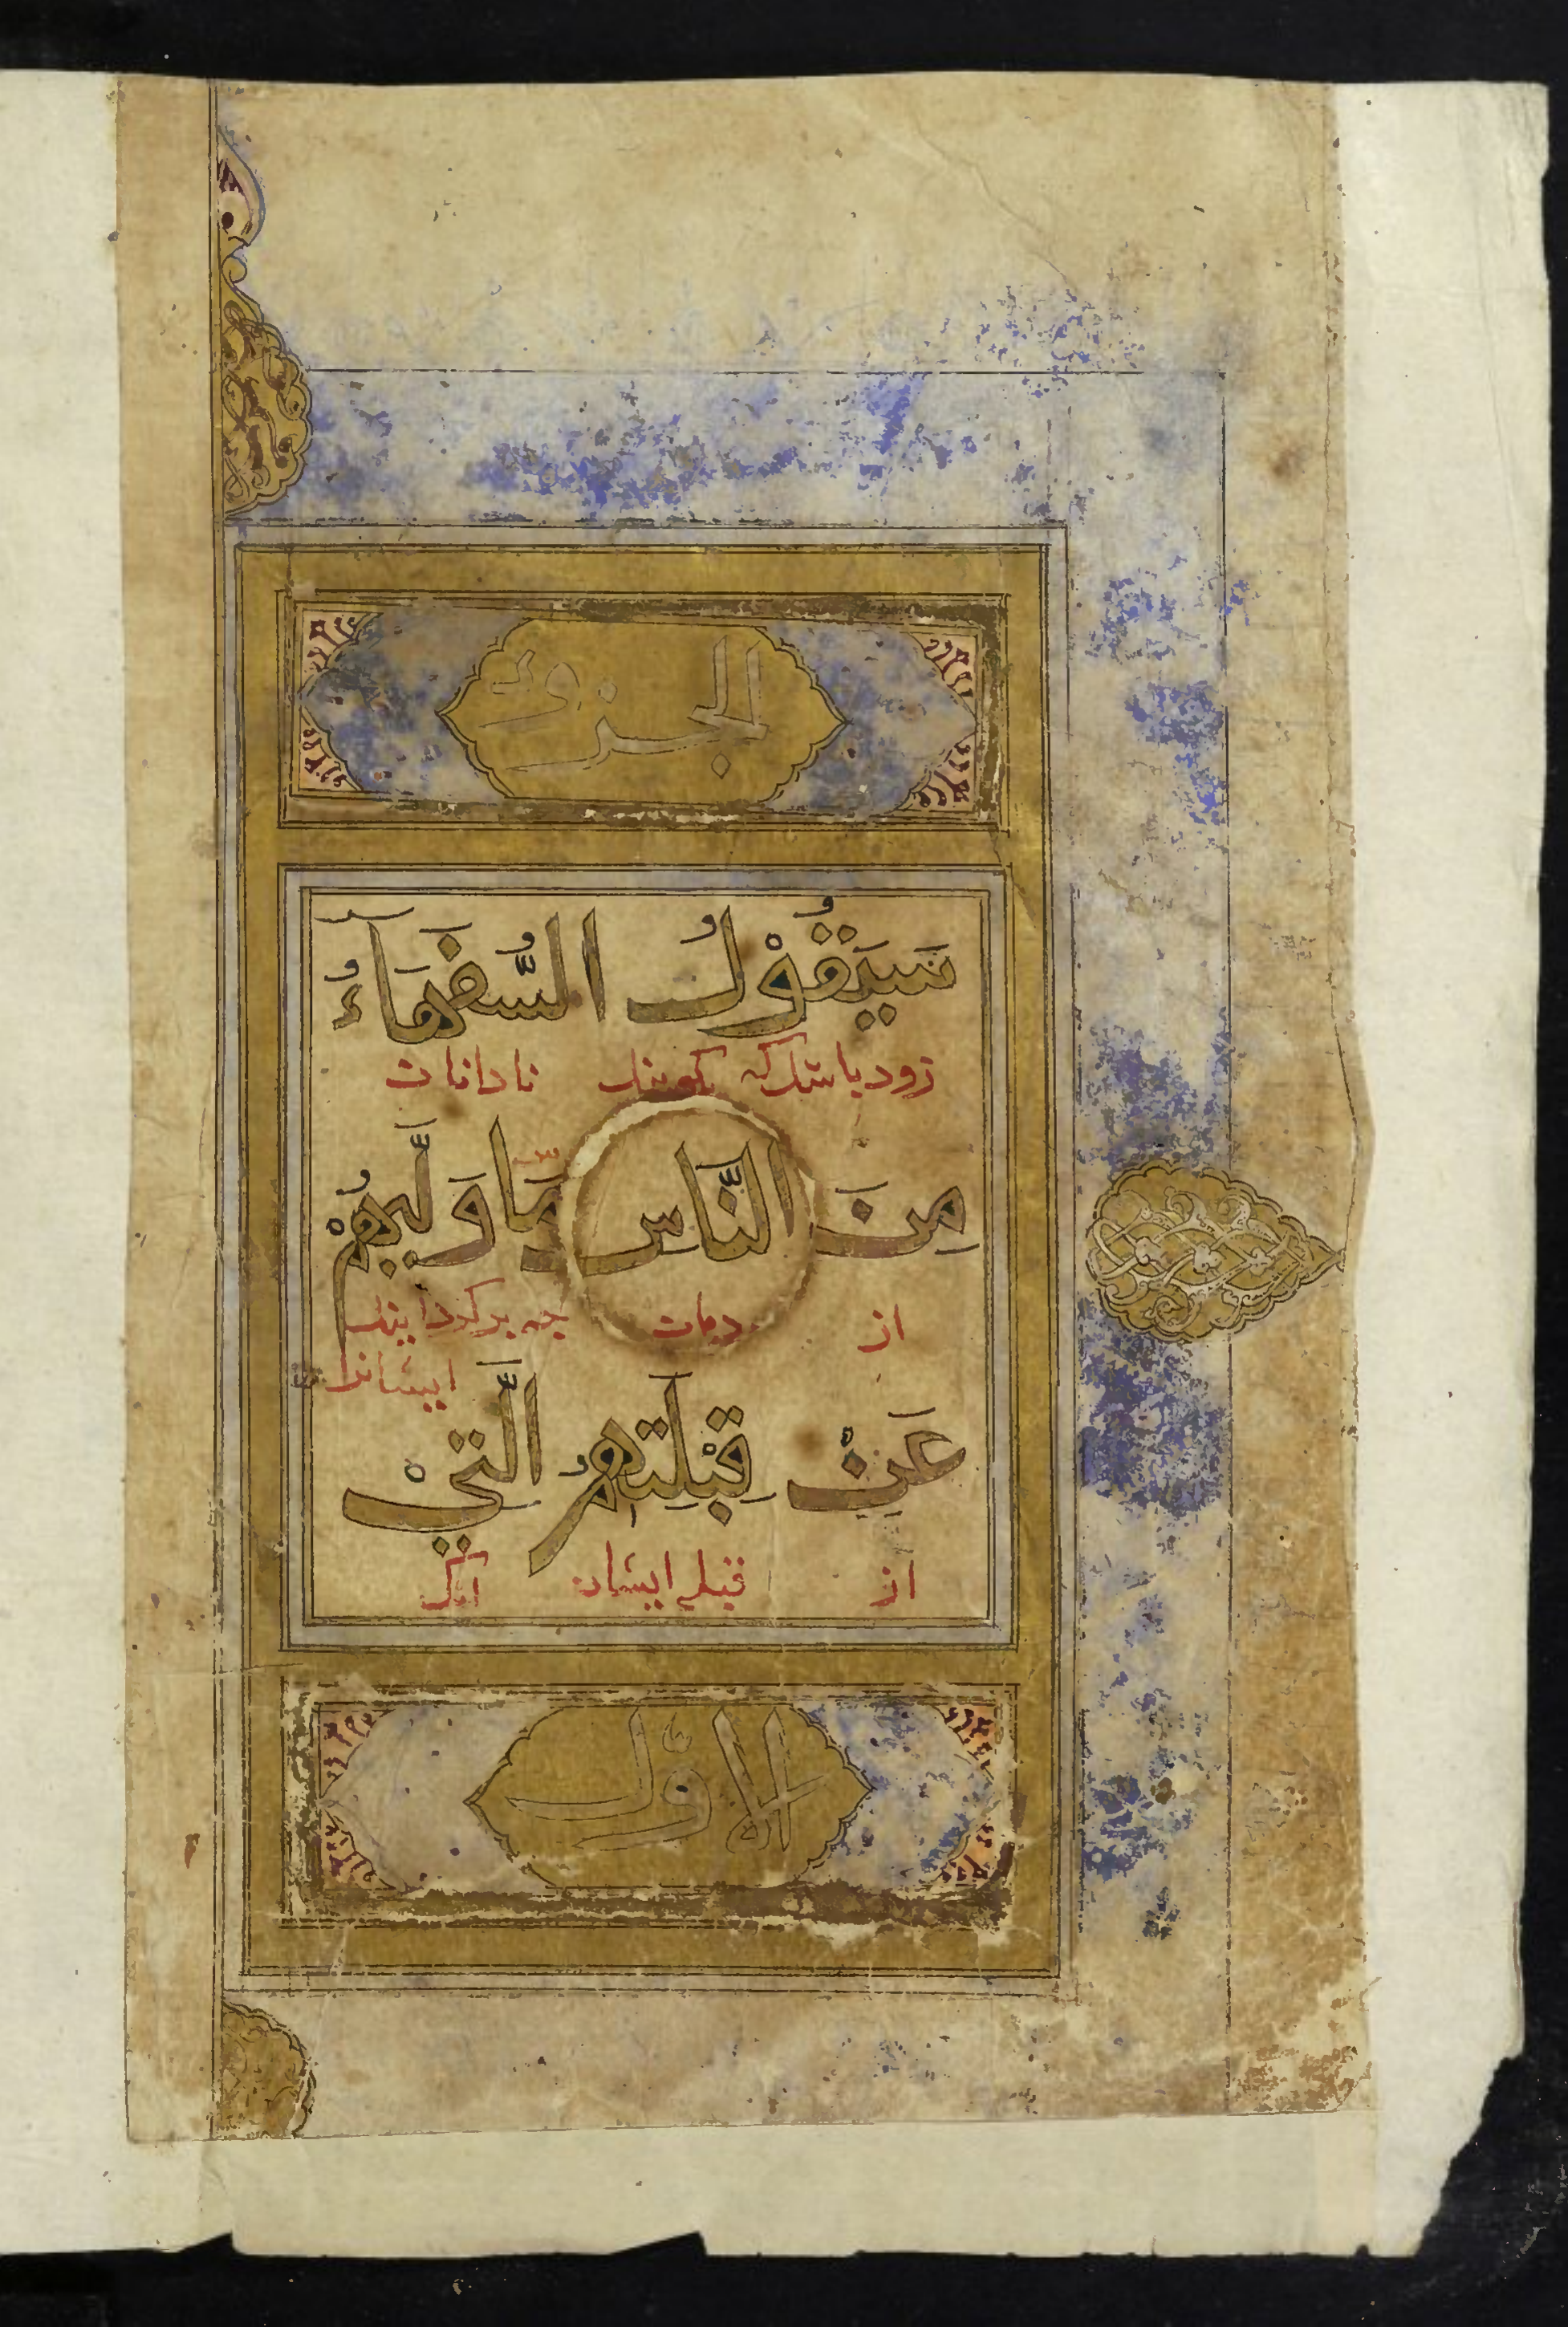 الجزو
سَيَقُوْلُ السُّفَهَآءُ
زود باشد که کویند نادانان
مِنَ النَّاسِ مَا وَلّٰيهُمْ
از دمان چه برکردانید
ایشانرا
عَنْ قِبْلَتِهِمُ الَّتِيْ
از قبلۀ ایشان آنک
الاوّل